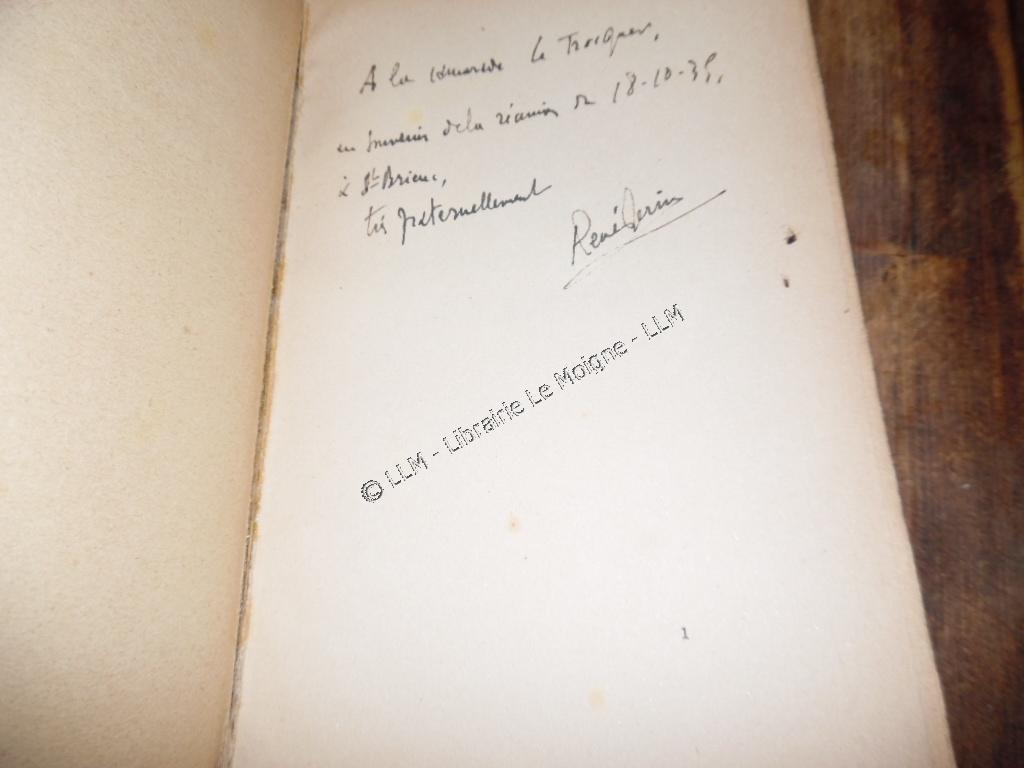 A la camarade Le Trocquer,
en souvenir de la réunion du 18-10-35,
à St-Brieuc,
très fraternellement
René
© LLM - Librairie Le Moigne - LLM
1